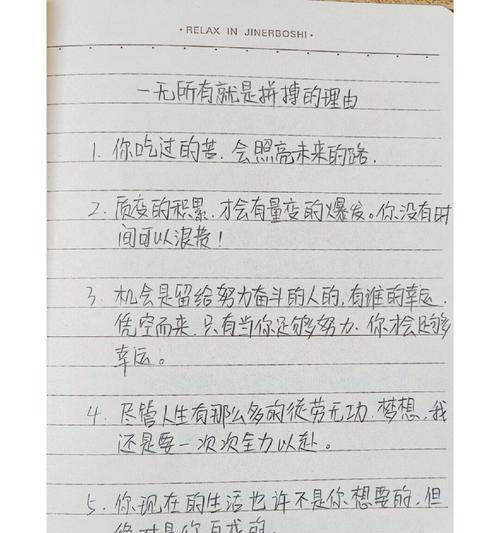 · RELAX IN JINERBOSHI ·
一无所有就是拼搏的理由
1. 你吃过的苦.会照亮未来的路.
2. 质变的积累.才会有量变的爆发。你没有时
间可以浪费！
3. 机会是留给努力奋斗的人的,有谁的幸运.
凭空而来.只有当你足够努力.你才会足够
幸运。
4. 尽管人生有那么多的徒劳无功.梦想,我
还是要一次次全力以赴。
5. 你现在的生活也许不是你想要的,但
绝对是你自找的.